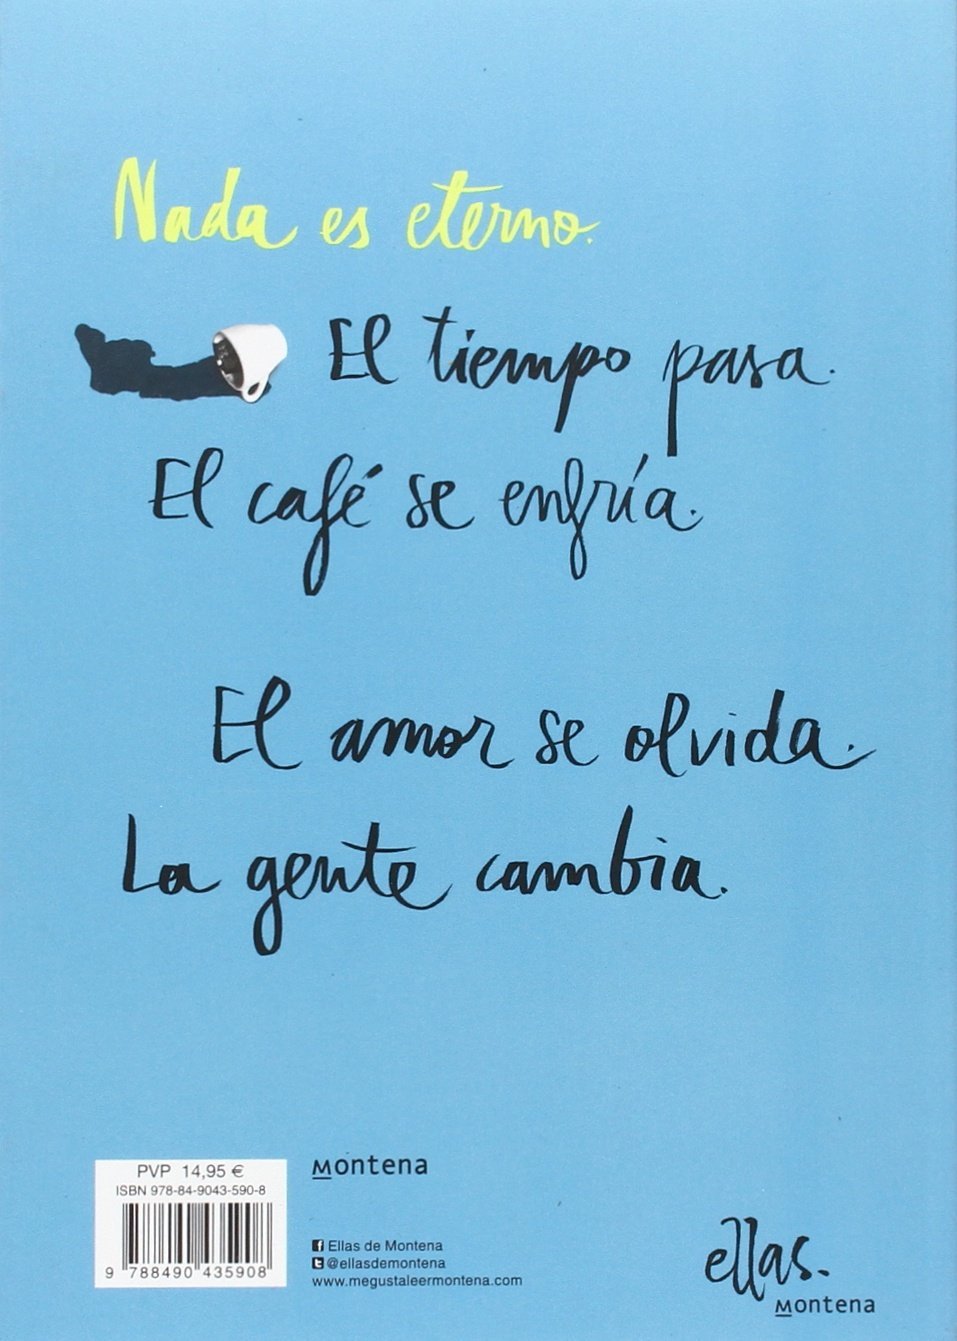 Nada es eterno.
El tiempo pasa.
El café se enfría.
El amor se olvida.
La gente cambia.
PVP 14,95 €
ISBN 978-84-9043-590-8
9 788490 435908
montena
Ellas de Montena
@ellasdemontena
www.megustaleermontena.com
ellas.
montena